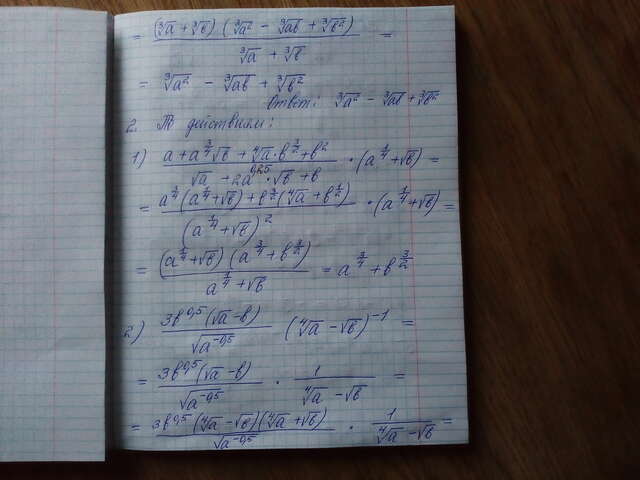 = (∛a + ∛b) (∛a² - ∛ab + ∛b²) / (∛a + ∛b) =
= ∛a² - ∛ab + ∛b²
Ответ: ∛a² - ∛ab + ∛b²
2. По действиям:
1) (a + a^(3/4)√b + ∜a · b^(3/2) + b²) / (√a + 2a^(0,25) · √b + b) · (a^(1/4) + √b) =
= (a^(3/4)(a^(1/4) + √b) + b^(3/2)(∜a + b^(1/2))) / (a^(1/4) + √b)² · (a^(1/4) + √b) =
= (a^(1/4) + √b) (a^(3/4) + b^(3/2)) / (a^(1/4) + √b) = a^(3/4) + b^(3/2)
2) 3b^(0,5)(√a - b) / √a^(-0,5) (∜a - √b)^(-1) =
= 3b^(0,5)(√a - b) / √a^(-0,5) · 1 / (∜a - √b) =
= 3b^(0,5)(∜a - √b)(∜a + √b) / √a^(-0,5) · 1 / (∜a - √b) =